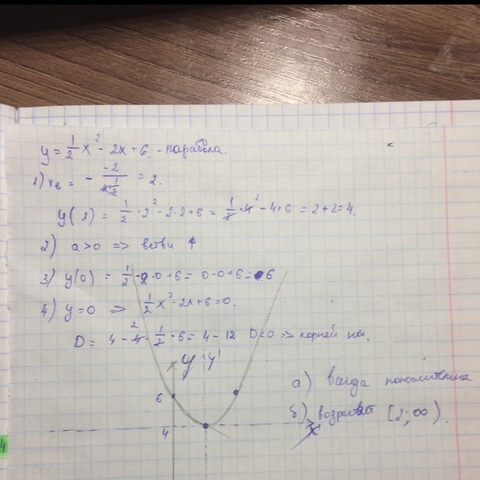 y = 1/2 x² - 2x + 6. - парабола.
1) xв = - -2/(2·1/2) = 2.
y(2) = 1/2 · 2² - 2·2 + 6 = 1/2 · 4² - 4 + 6 = 2 + 2 = 4.
2) a>0 => ветви ↑
3) y(0) = 1/2 · 0 + 6 = 0 - 0 + 6 = 6
4) y=0 => 1/2 x² - 2x + 6 = 0.
D = 4 - 4 · 1/2 · 6 = 4 - 12 D<0 => корней нет.
y
6
а) всегда положительна
б) возрастает [2; ∞).
x
4